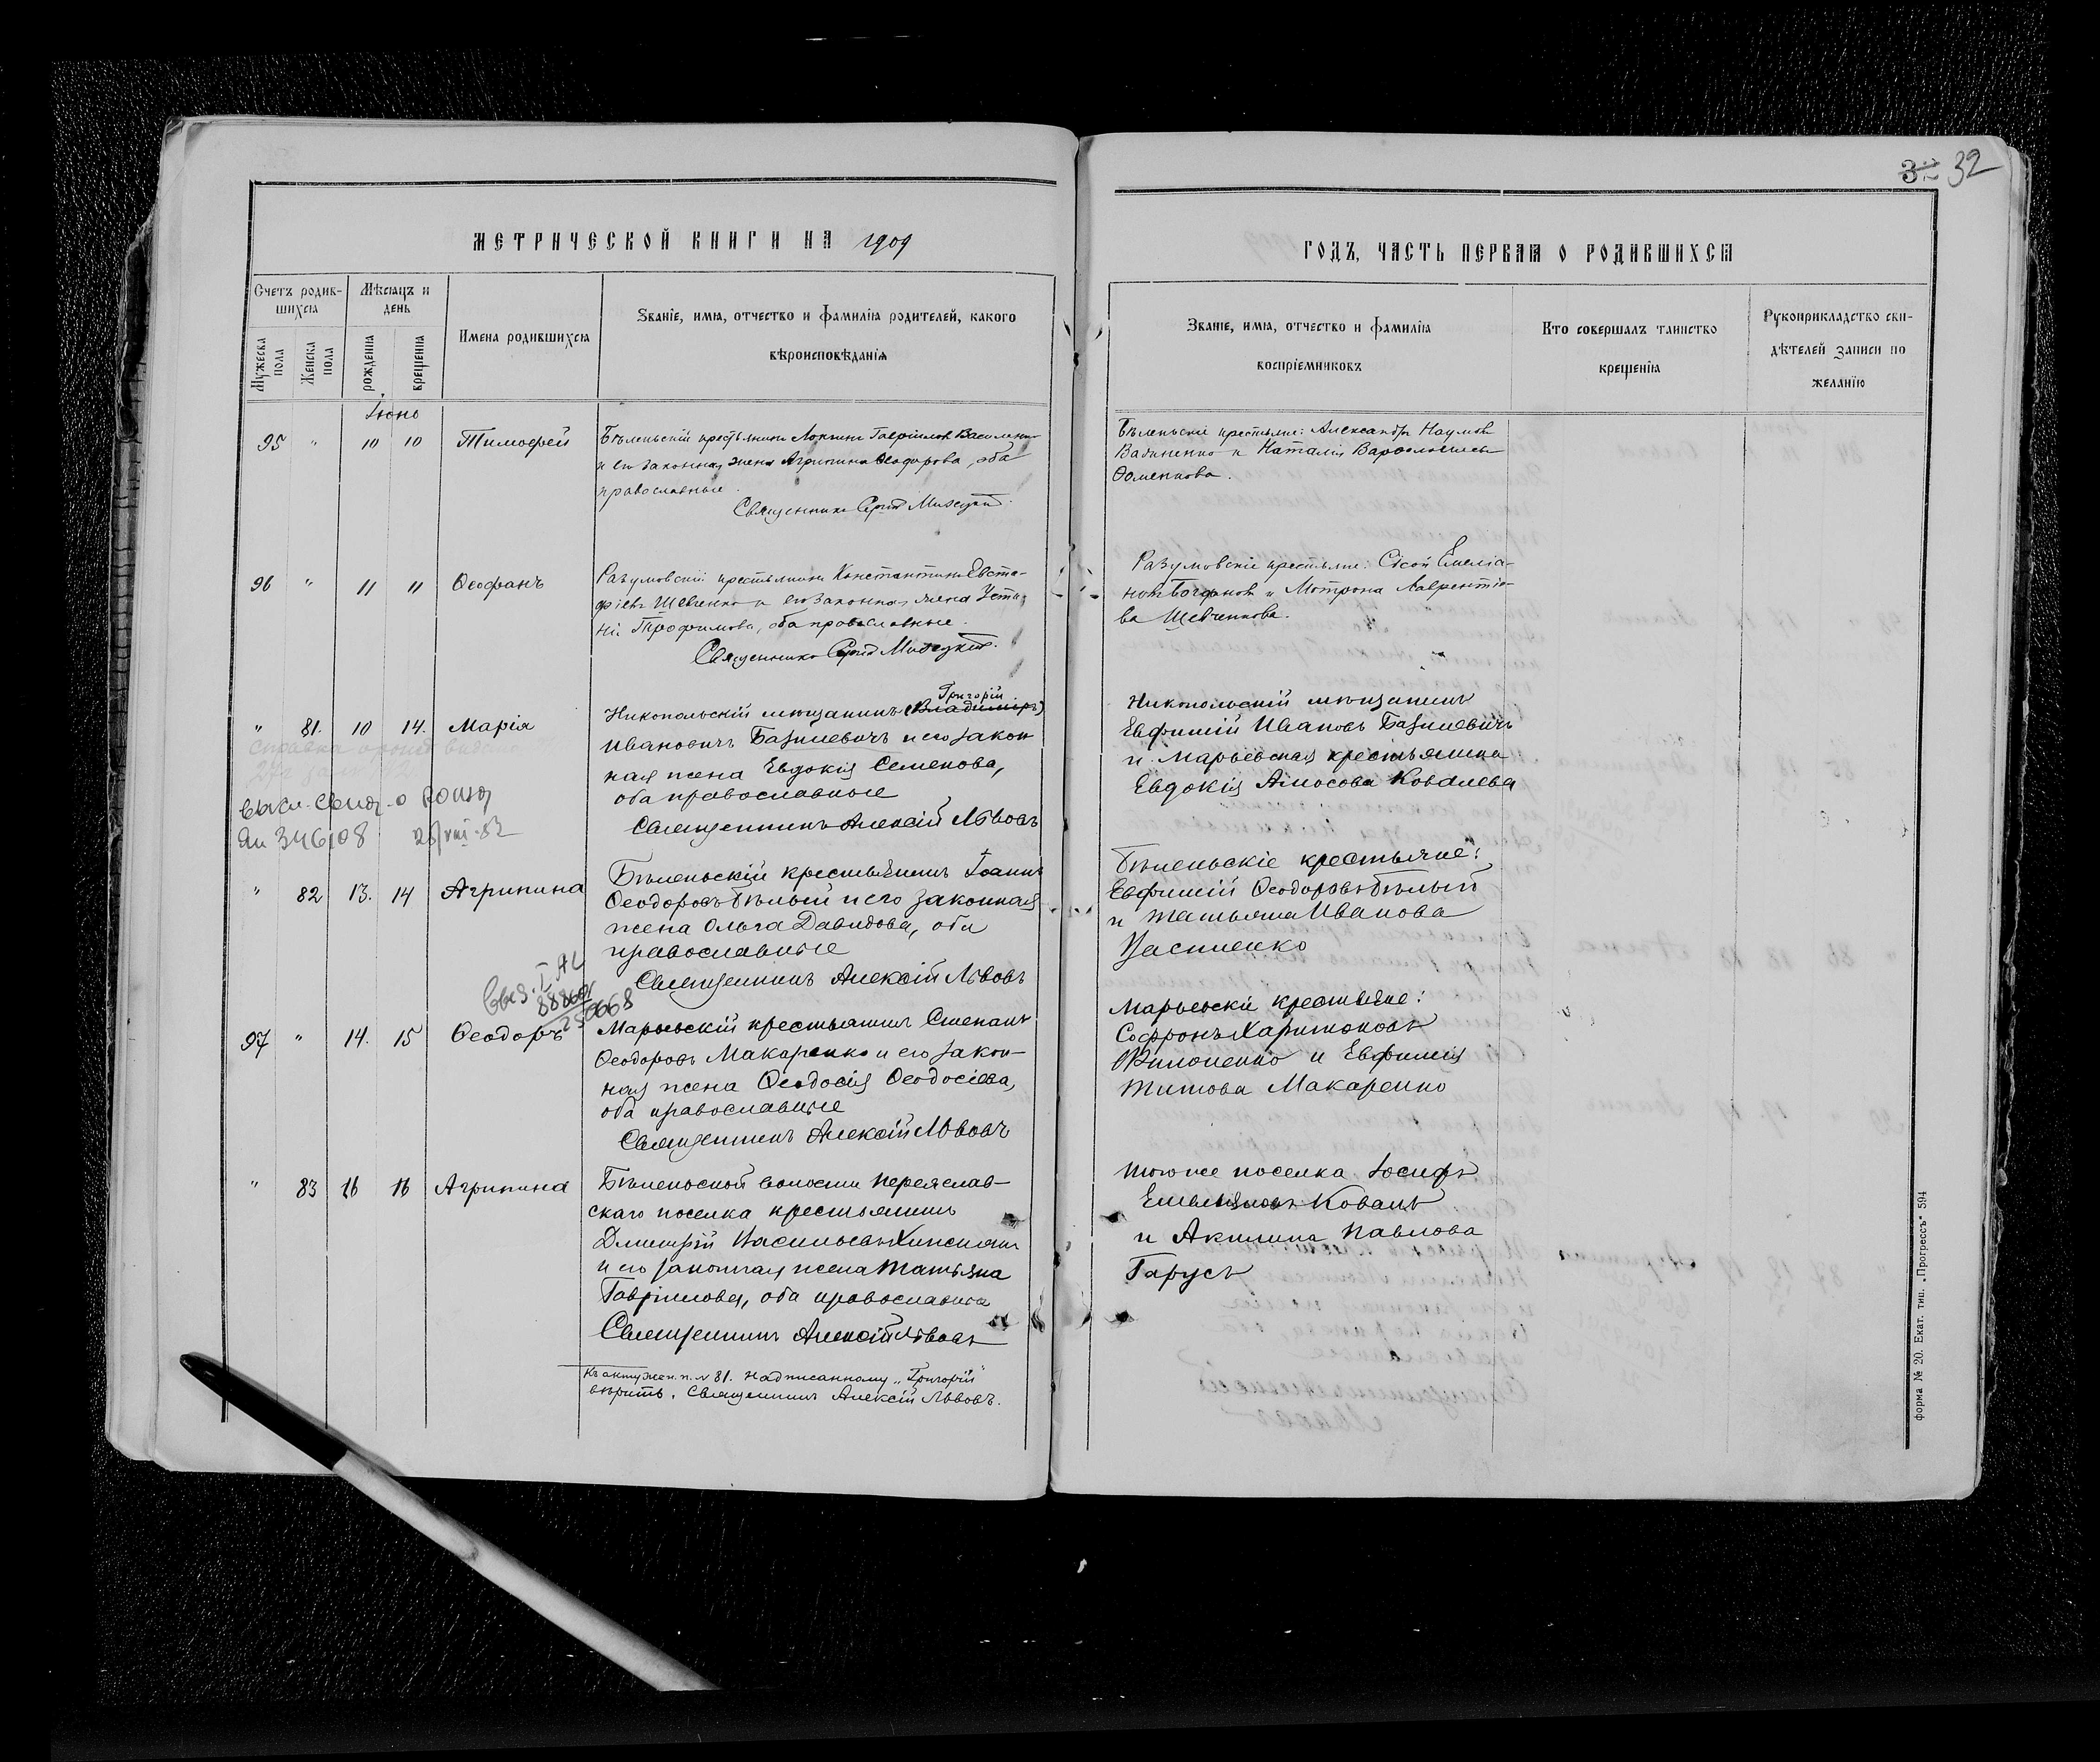 32
МЕТРИЧЕСКОЙ КНИГИ НА 1909
ГОДЪ, ЧАСТЬ ПЕРВАЯ О РОДИВШИХСЯ
Счетъ родив-
шихся
Мужеска пола
Женска пола
Мѣсяцъ и
день
рожденія
крещенія
Имена родившихся
Званіе, имя, отчество и фамилія родителей, какого
вѣроисповѣданія
Званіе, имя, отчество и фамилія
воспріемниковъ
Кто совершалъ таинство
крещенія
Рукоприкладство сви-
дѣтелей записи по
желанію
Іюнь
95 " 10 10 Тимофей
Бѣленьскій крестьянинъ Гавріиловъ
и его законная жена Агрипина Ѳеодорова, оба
православные.
Священникъ
Бѣленьскіе крестьяне: Александръ Наумовъ
и Наталія
Ѳоменкова.
96 " 11 11 Ѳеофанъ
Разумовскій крестьянинъ Константинъ Евста-
фіевъ Шевченко и его законная жена Усти-
нія Трофимова, оба православные.
Священникъ
Разумовскіе крестьяне: Сісой Емеліа-
новъ Богдановъ и Мотрона Лаврентіе-
ва Шевченкова.
" 81. 10 14. Марія
Григорій
Никопольскій мѣщанинъ (Владиміръ)
Ивановичъ Базилевичъ и его закон
ная жена Евдокія Семенова,
оба православные
Священникъ Алексій Львовъ
Никопольскій мѣщанинъ
Евфимій Ивановъ Базилевичъ
и Марьевская крестьянка
Евдокія Амосова Ковалева
346108
" 82 13. 14 Агрипина
Бѣленьскій крестьянинъ Іоаннъ
Ѳеодоровъ Бѣлый и его законная
жена Ольга Давидова, оба
православные
Священникъ Алексій Львовъ
Бѣленьскіе крестьяне:
Евфимій Ѳеодоровъ Бѣлый
и Татьяна Иванова
97 " 14. 15 Ѳеодоръ
Марьевскій крестьянинъ Стефанъ
Ѳеодоровъ Макаренко и его закон-
ная жена Ѳеодосія Ѳеодосіева,
оба православные
Священникъ Алексій Львовъ
Марьевскіе крестьяне:
Софронъ Харитоновъ
Филоненко и Евфимія
Титова Макаренко
" 83 16 16 Агрипина
Бѣленьской волости Переяслав-
скаго поселка крестьянинъ
Димитрій Васильевъ
и его законная жена Татьяна
Гавріилова, оба православные
Священникъ Алексій Львовъ
того же поселка Іосифъ
Емельяновъ Коваль
и Акилина Павлова
Гарусъ
Къ акту жен. п. № 81. надписанному „Григорій"
вѣрить. Священникъ Алексій Львовъ.
Форма № 20. Екат. тип. „Прогрессъ" 594